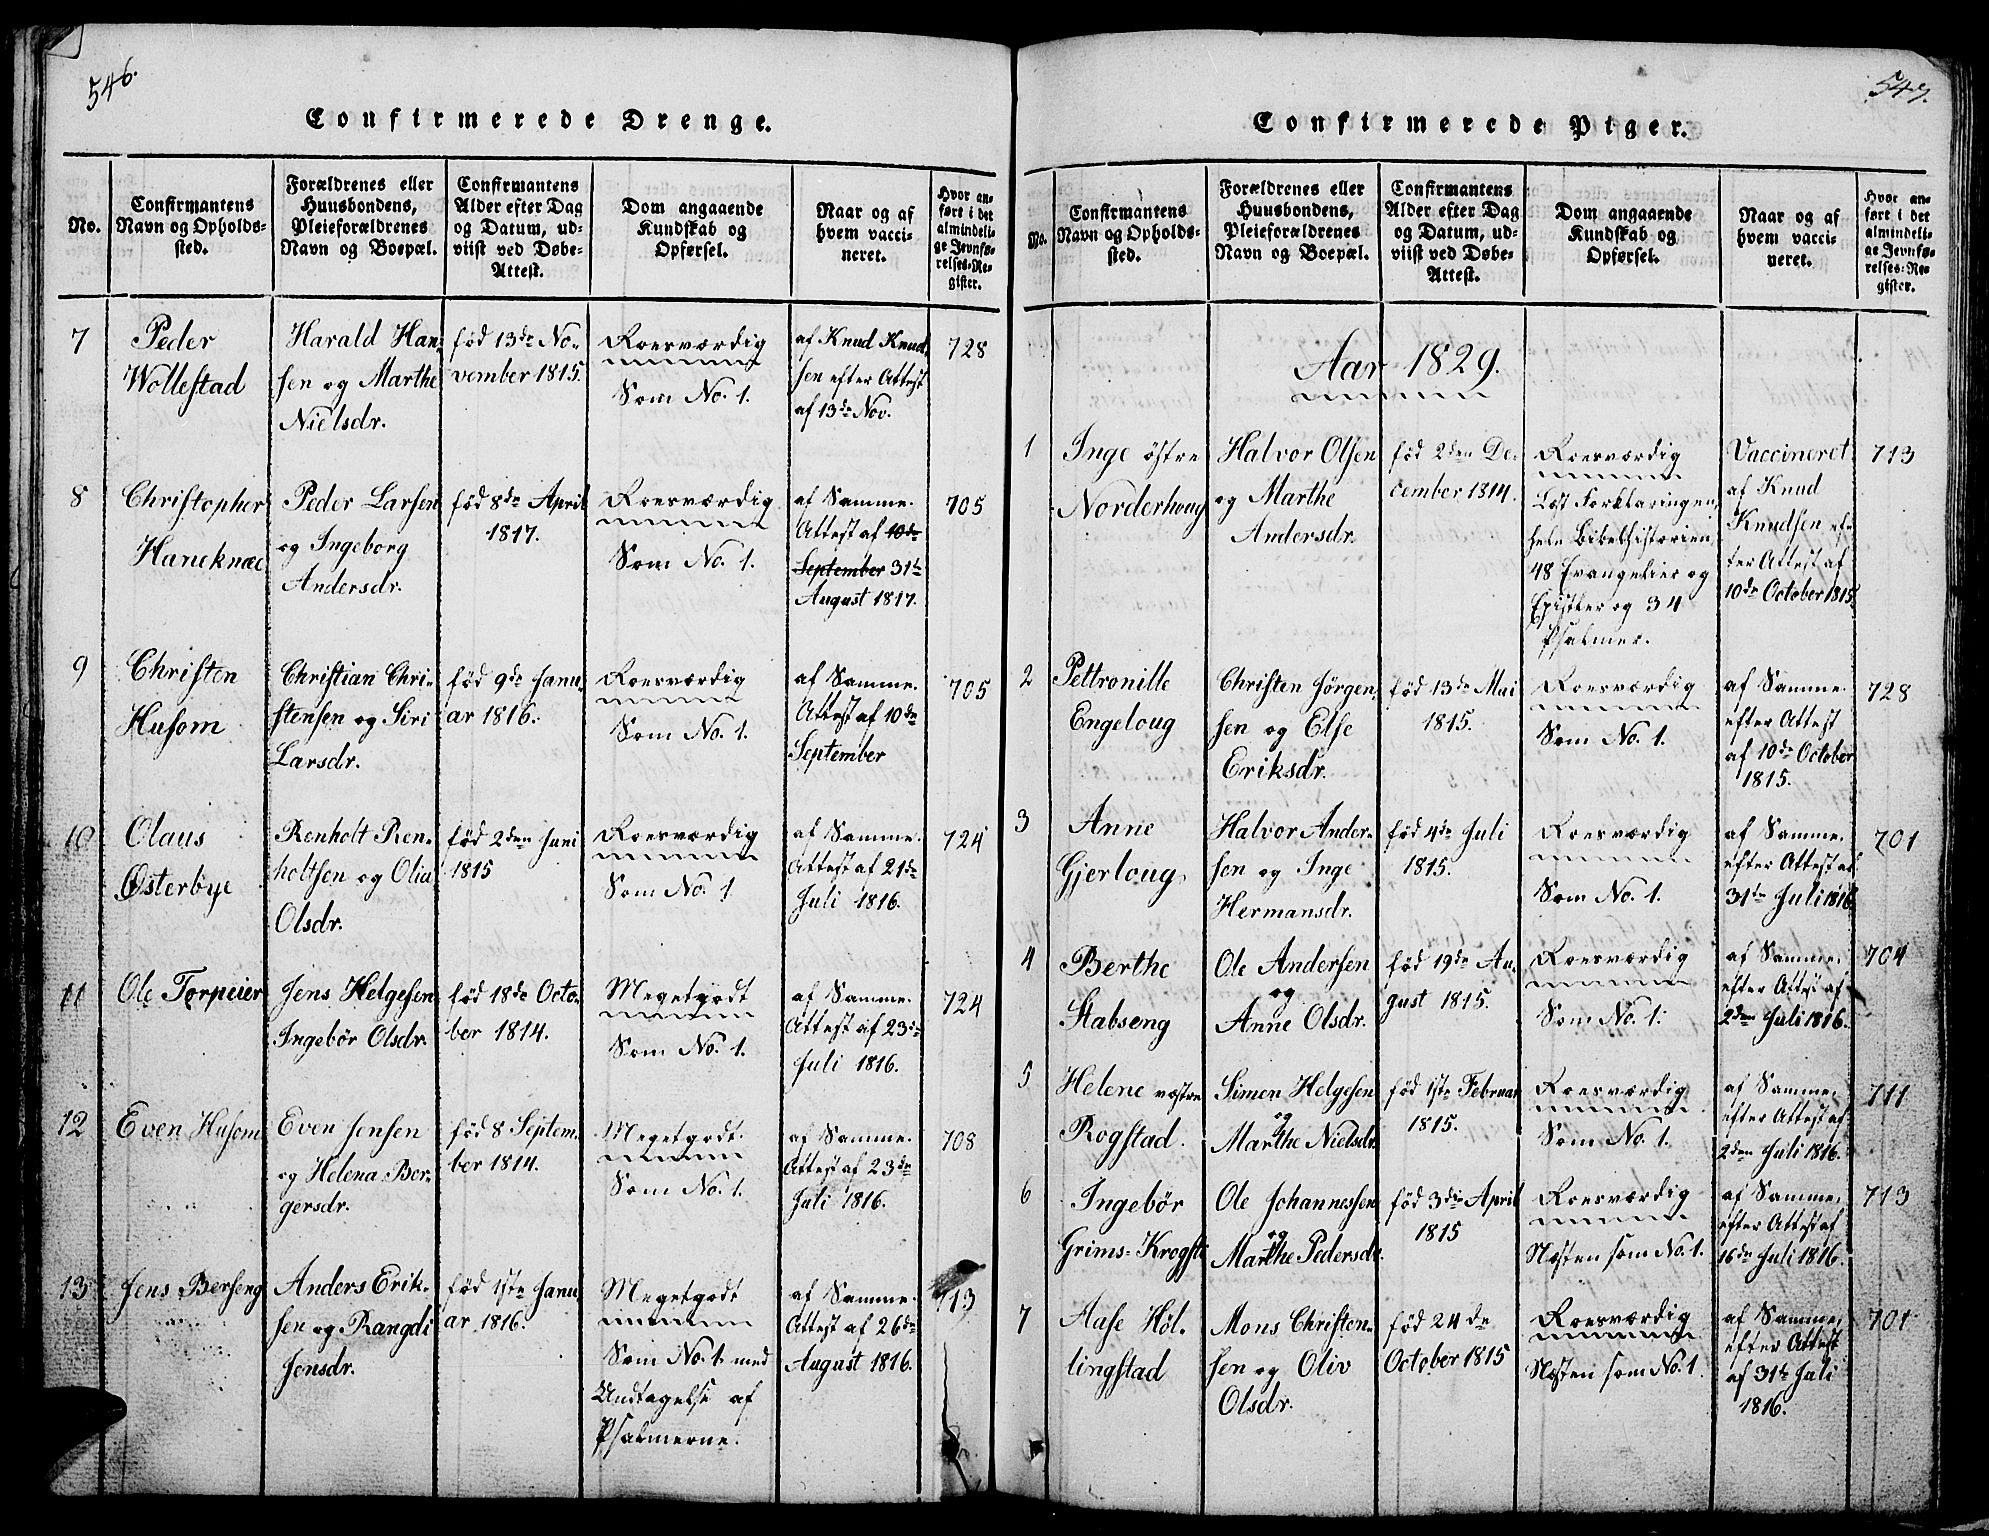 546.
Confirmerede Drenge.
No.
Confirmantens
Navn og Opholds-
sted.
Forældrenes eller
Huusbondens,
Pleieforældrenes
Navn og Boepæl.
Confirmantens
Alder efter Dag
og Datum, ud-
viist ved Døbe-
Attest.
Dom angaaende
Kundskab og
Opførsel.
Naar og af
hvem vacci-
neret.
Hvor an-
ført i det
almindeli-
ge Jevnfø-
relses-Re-
gister.
7
Peder
Wollestad
Harald Han-
sen og Marthe
Nielsdr.
fød 13de No-
vember 1815.
Roesværdig
Som No. 1.
af Knud Knud-
sen efter Attest
af 13de Nov.
728
8
Christopher
Haneknæ
Peder Larsen
og Ingeborg
Andersdr.
fød 8de April
1817.
Roesværdig
Som No. 1.
af Samme.
Attest af 10de
September 31te
August 1817.
705
9
Christen
Husom
Christian Chri-
stensen og Siri
Larsdr.
fød 9de Janu-
ar 1816.
Roesværdig
Som No. 1.
af Samme.
Attest af 10de
September
705
10
Olaus
Østerbye
Renholt Ren-
holtsen og Olia
Olsdr.
fød 2den Juni
1815
Roesværdig
Som No. 1
af Samme.
Attest af 21de
Juli 1816.
724
11
Ole Torpeier
Jens Helgesen
Ingebør Olsdr.
fød 18de Octo-
ber 1814.
Megetgodt
Som No. 1.
af Samme.
Attest af 23de
Juli 1816.
724
12
Even Husom
Even Jensen
og Helena Ber-
gersdr.
fød 8 Septem-
ber 1814.
Megetgodt.
Som No. 1.
af Samme.
Attest af 23de
Juli 1816.
708
13
Jens Berseng
Anders Erik-
sen og Rangdi
Jensdr.
fød 1ste Janu-
ar 1816.
Megetgodt
Som No. 1. med
Undtagelse af
Psalmerne.
af Samme.
Attest af 26de
August 1816.
713
547.
Confirmerede Piger.
No.
Confirmantens
Navn og Opholds-
sted.
Forældrenes eller
Huusbondens,
Pleieforældrenes
Navn og Boepæl.
Confirmantens
Alder efter Dag
og Datum, ud-
viist ved Døbe-
Attest.
Dom angaaende
Kundskab og
Opførsel.
Naar og af
hvem vacci-
neret.
Hvor an-
ført i det
almindeli-
ge Jevnfø-
relses-Re-
gister.
Aar 1829.
1
Inge østre
Norderhoug
Halvor Olsen
og Marthe
Andersdr.
fød 2den De-
cember 1814.
Roesværdig
Læst Forklaringen,
hele Bibelhistorien,
48 Evangelier og
Epistler og 34
Psalmer.
Vaccineret
af Knud
Knudsen ef-
ter Attest af
10de October 1815.
713
2
Pettronille
Engeloug
Christen Jørgen-
sen og Else
Eriksdr.
fød 13de Mai
1815.
Roesværdig
Som No. 1.
af Samme.
efter Attest
af 10de October
1815.
728
3
Anne
Gjerloug
Halvor Ander-
sen og Inge
Hermansdr.
fød 4de Juli
1815.
Roesværdig
Som No. 1.
af Samme.
efter Attest af
31te Juli 1816.
701
4
Berthe
Stabseng
Ole Andersen
og
Anne Olsdr.
fød 19de Au-
gust 1815.
Roesværdig
Som No. 1.
af Samme,
efter Attest af
2den Juli 1816.
704
5
Helene vestre
Rogstad.
Simen Helgesen
og
Marthe Nielsdr.
fød 1ste Februar
1815.
Roesværdig
Som No. 1.
af Samme,
efter Attest af
2den Juli 1816.
711
6
Ingebør
Grims-Krogsti
Ole Johannessen
og
Marthe Pedersdr.
fød 3die April
1815
Roesværdig
Næsten som No. 1.
af Samme,
efter Attest af
16de Juli 1816.
713
7
Aase Høl-
lingstad
Mons Christen-
sen og Oliv
Olsdr.
fød 24de
October 1815
Roesværdig
Næsten som No. 1.
af Samme,
efter Attest
af 31te Juli
1816.
701